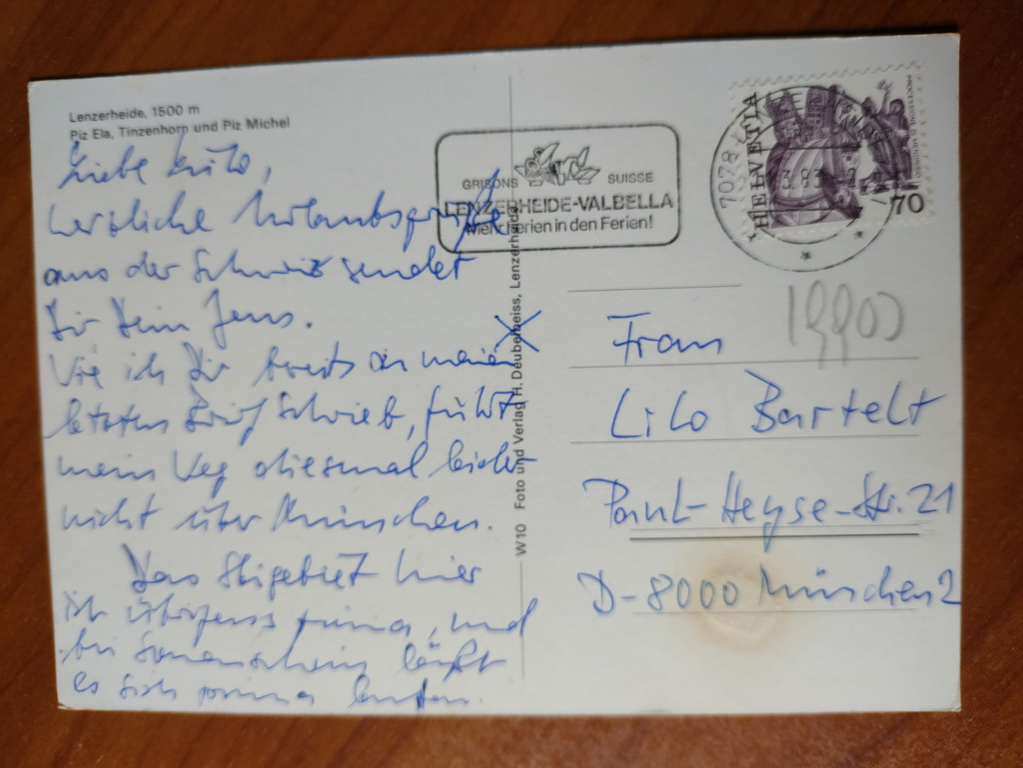 Lenzerheide, 1500 m
Piz Ela, Tinzenhorn und Piz Michel
Liebe Lilo,
herzliche Urlaubsgrüße
aus der Schweiz sendet
Dir Dein Jens.
Wie ich Dir bereits in meinem
letzten Brief schrieb, führt
mein Weg diesmal leider
nicht über München.
Das Skigebiet hier
ist übrigens prima, und
bei Sonnenschein läßt
es sich prima laufen.
W10 Foto und Verlag H. Deubelbeiss, Lenzerheide
GRISONS SUISSE
LENZERHEIDE-VALBELLA
in den Ferien!
7078
HELVETIA
70
Frau
Lilo Bartelt
Paul-Heyse-Str. 21
D-8000 München 2